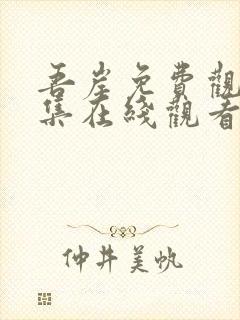 吾岸免費觀
集在綫觀看
仲井美帆